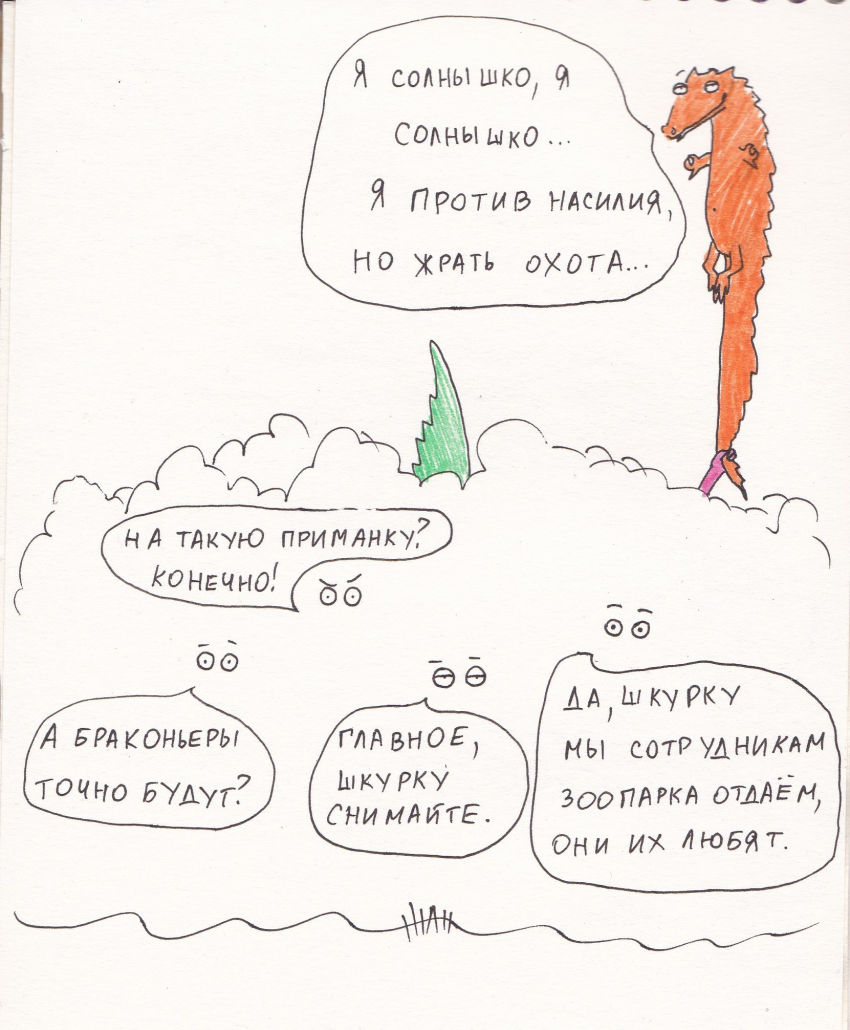 Я СОЛНЫШКО, Я
СОЛНЫШКО...
Я ПРОТИВ НАСИЛИЯ,
НО ЖРАТЬ ОХОТА...
НА ТАКУЮ ПРИМАНКУ?
КОНЕЧНО!
А БРАКОНЬЕРЫ
ТОЧНО БУДУТ?
ГЛАВНОЕ,
ШКУРКУ
СНИМАЙТЕ.
ДА, ШКУРКУ
МЫ СОТРУДНИКАМ
ЗООПАРКА ОТДАЁМ,
ОНИ ИХ ЛЮБЯТ.